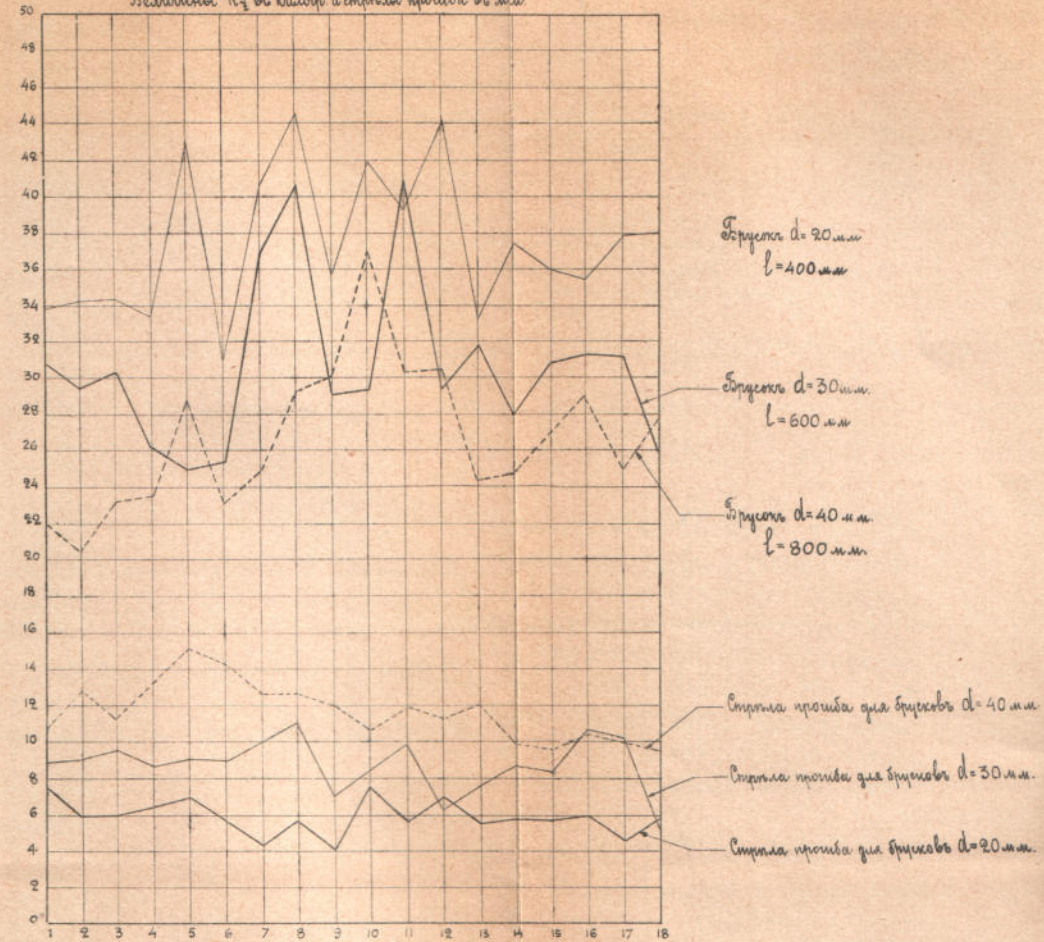 Величины R½ въ килогр. и стрѣлы прогиба въ м.м.
50
48
46
44
42
40
38
36
34
32
30
28
26
24
22
20
18
16
14
12
10
8
6
4
2
0
1 2 3 4 5 6 7 8 9 10 11 12 13 14 15 16 17 18
Брусокъ d=20 м.м.
l=400 м.м.
Брусокъ d=30 м.м.
l=600 м.м.
Брусокъ d=40 м.м.
l=800 м.м.
Стрѣла прогиба для брусковъ d=40 м.м.
Стрѣла прогиба для брусковъ d=30 м.м.
Стрѣла прогиба для брусковъ d=20 м.м.